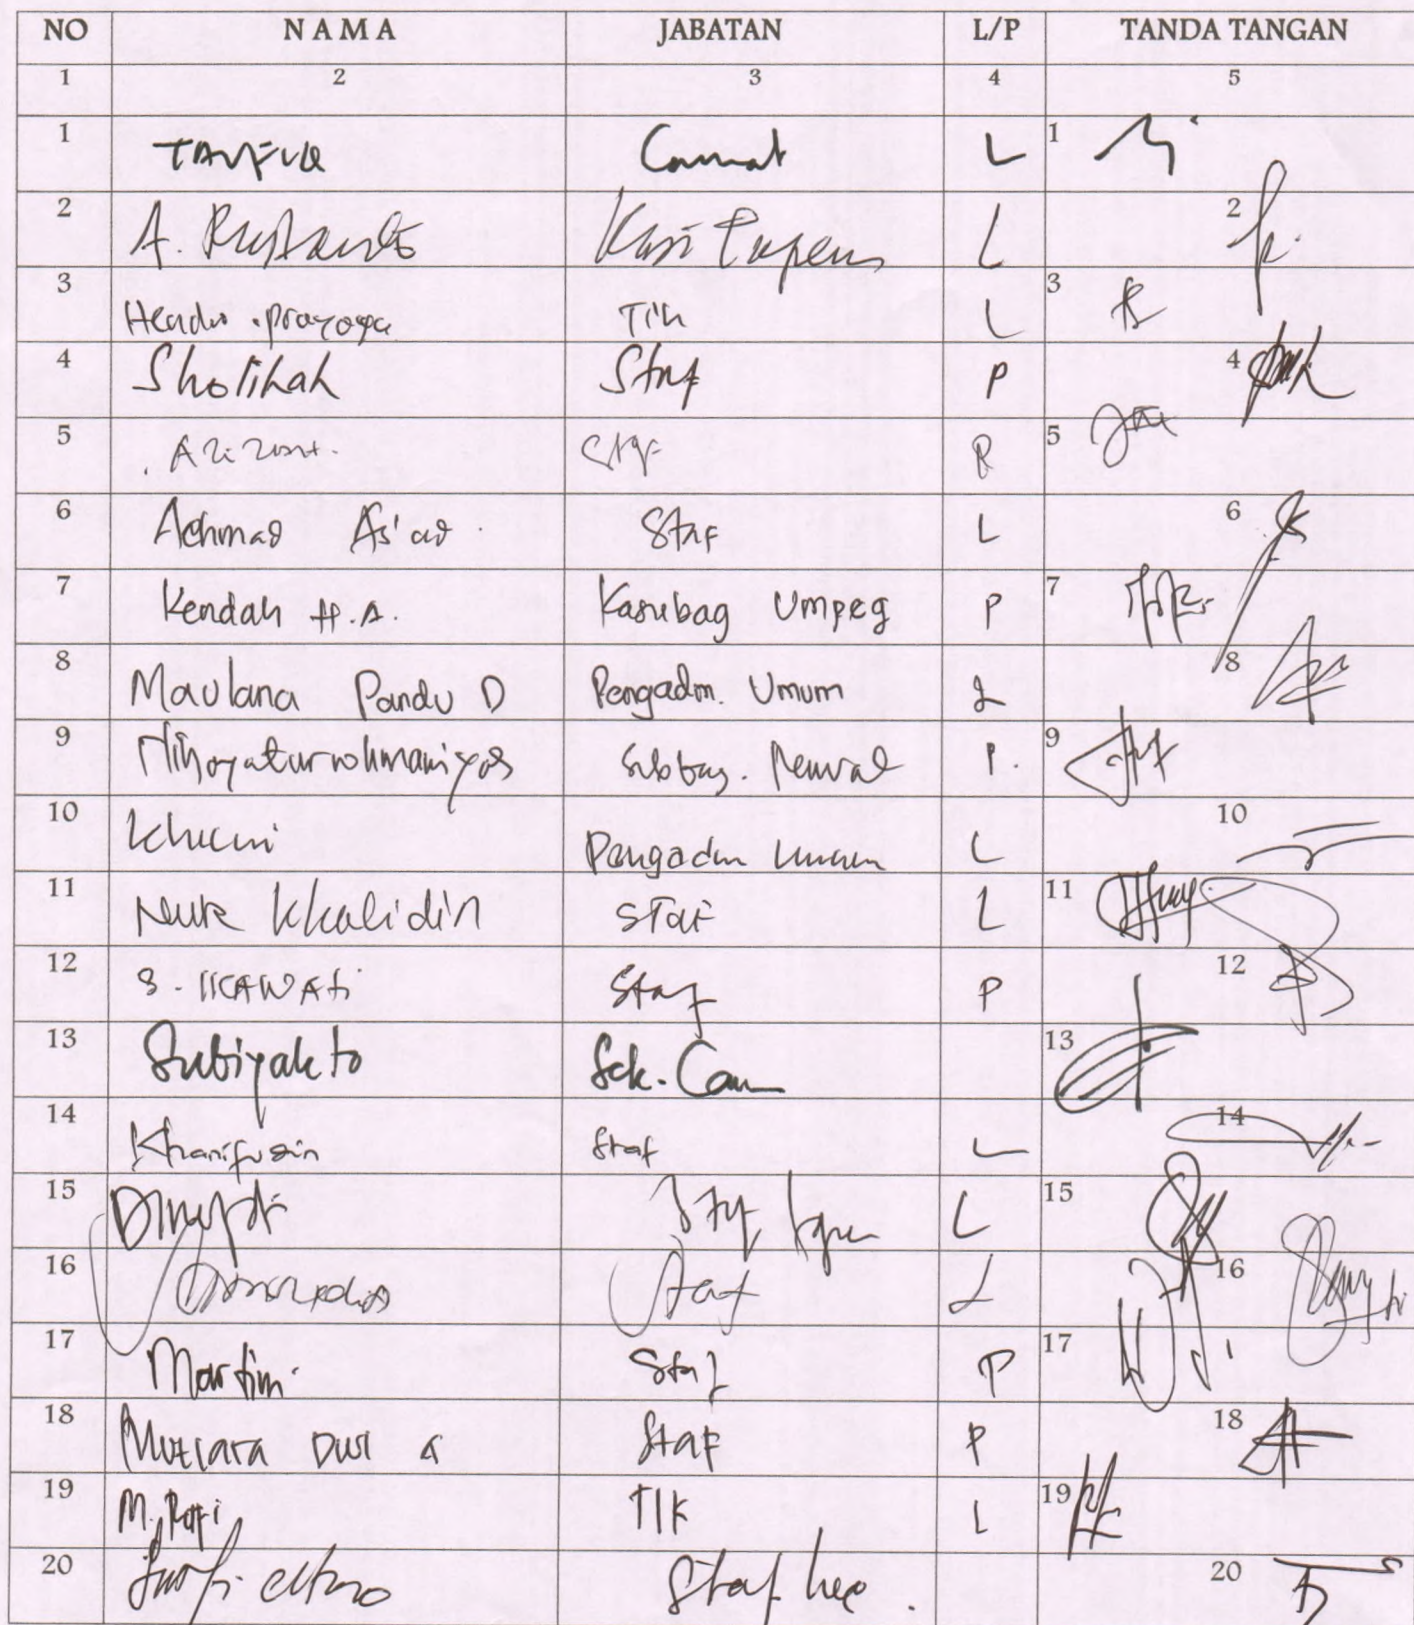 NO NAMA JABATAN L/P TANDA TANGAN
1 2 3 4 5
1 TAUFIQ Camat L 1
2 A. Rustanto Kasi L 2
3 Hendro prayoga Tik L 3
4 Sholihah Staf P 4
5 P 5
6 Achmad As'ad Staf L 6
7 Kendah H.A. Kasubag Umpeg P 7
8 Maulana Pandu D Pengadm. Umum L 8
9 Nihayaturrohmaniyah Subbag. P. 9
10 Khusni Pengadm Umum L 10
11 Nur Khalidin Staf L 11
12 S. IKAWATi Staf P 12
13 Subiyakto Sek. Cam 13
14 Khanifudin Staf L 14
15 L 15
16 Staf L 16
17 Martini Staf P 17
18 Mutiara Dwi A Staf P 18
19 M. Rofi TIK L 19
20 Staf 20